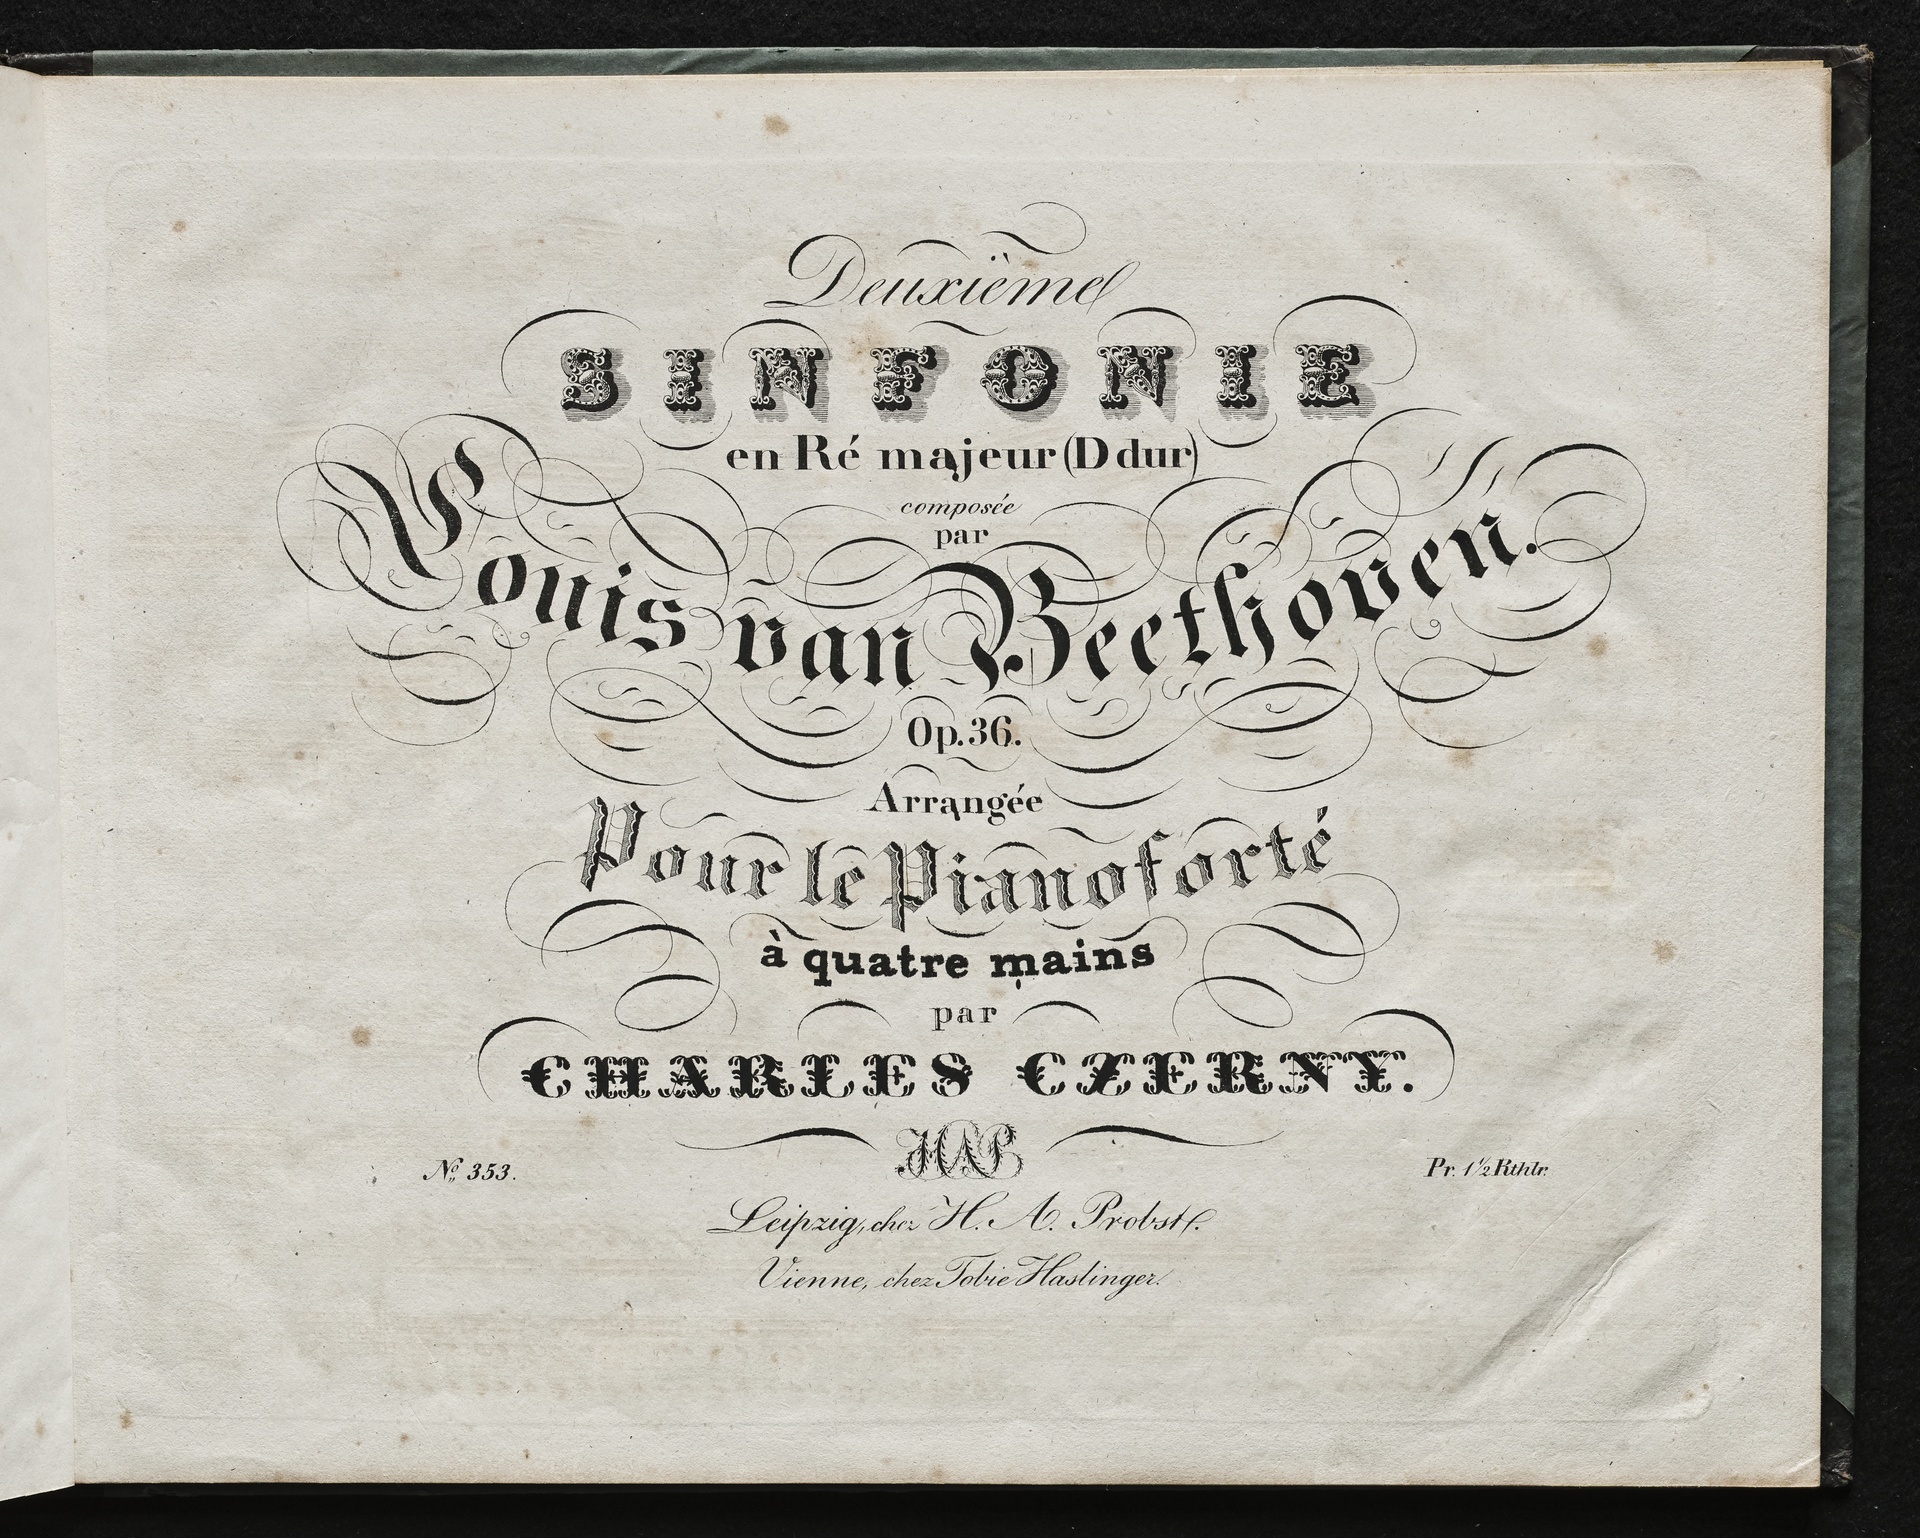 Deuxième
SINFONIE
en Ré majeur (D dur)
composée
par
Louis van Beethoven.
Op. 36.
Arrangée
Pour le Pianoforté
à quatre mains
par
CHARLES CZERNY.
HAP
No. 353.
Pr. 1 1/2 Rthlr.
Leipzig, chez H. A. Probst.
Vienne, chez Tobie Haslinger.